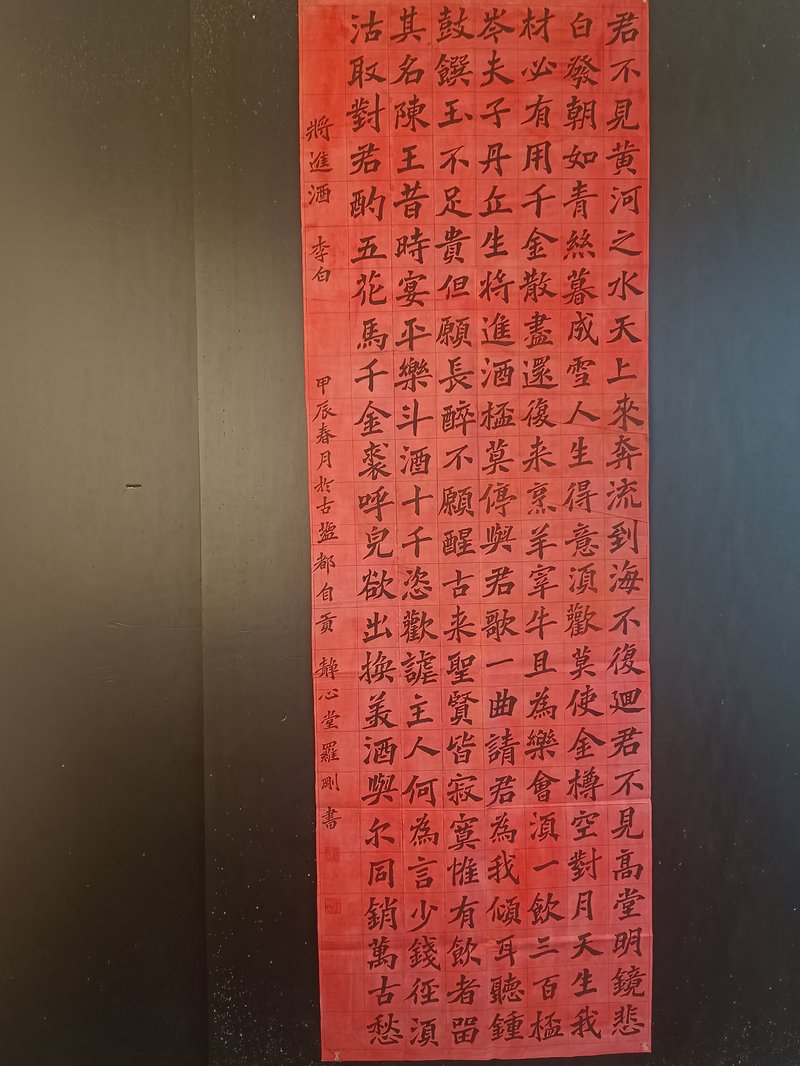 君不見黄河之水天上來奔流到海不復迴君不見高堂明鏡悲
白發朝如青絲暮成雪人生得意須歡莫使金樽空對月天生我
材必有用千金散盡還復来烹羊宰牛且為樂會須一飲三百桮
岑夫子丹丘生将進酒桮莫停與君歌一曲請君為我傾耳聽鍾
鼓饌玉不足貴但願長醉不願醒古来聖賢皆寂寞惟有飲者畱
其名陳王昔時宴平樂斗酒十千恣歡謔主人何為言少錢徑須
沽取對君酌五花馬千金裘呼兒欲出換美酒與尔同銷萬古愁
將進酒 李白 甲辰春月於古盬都自贡 静心堂羅剛書